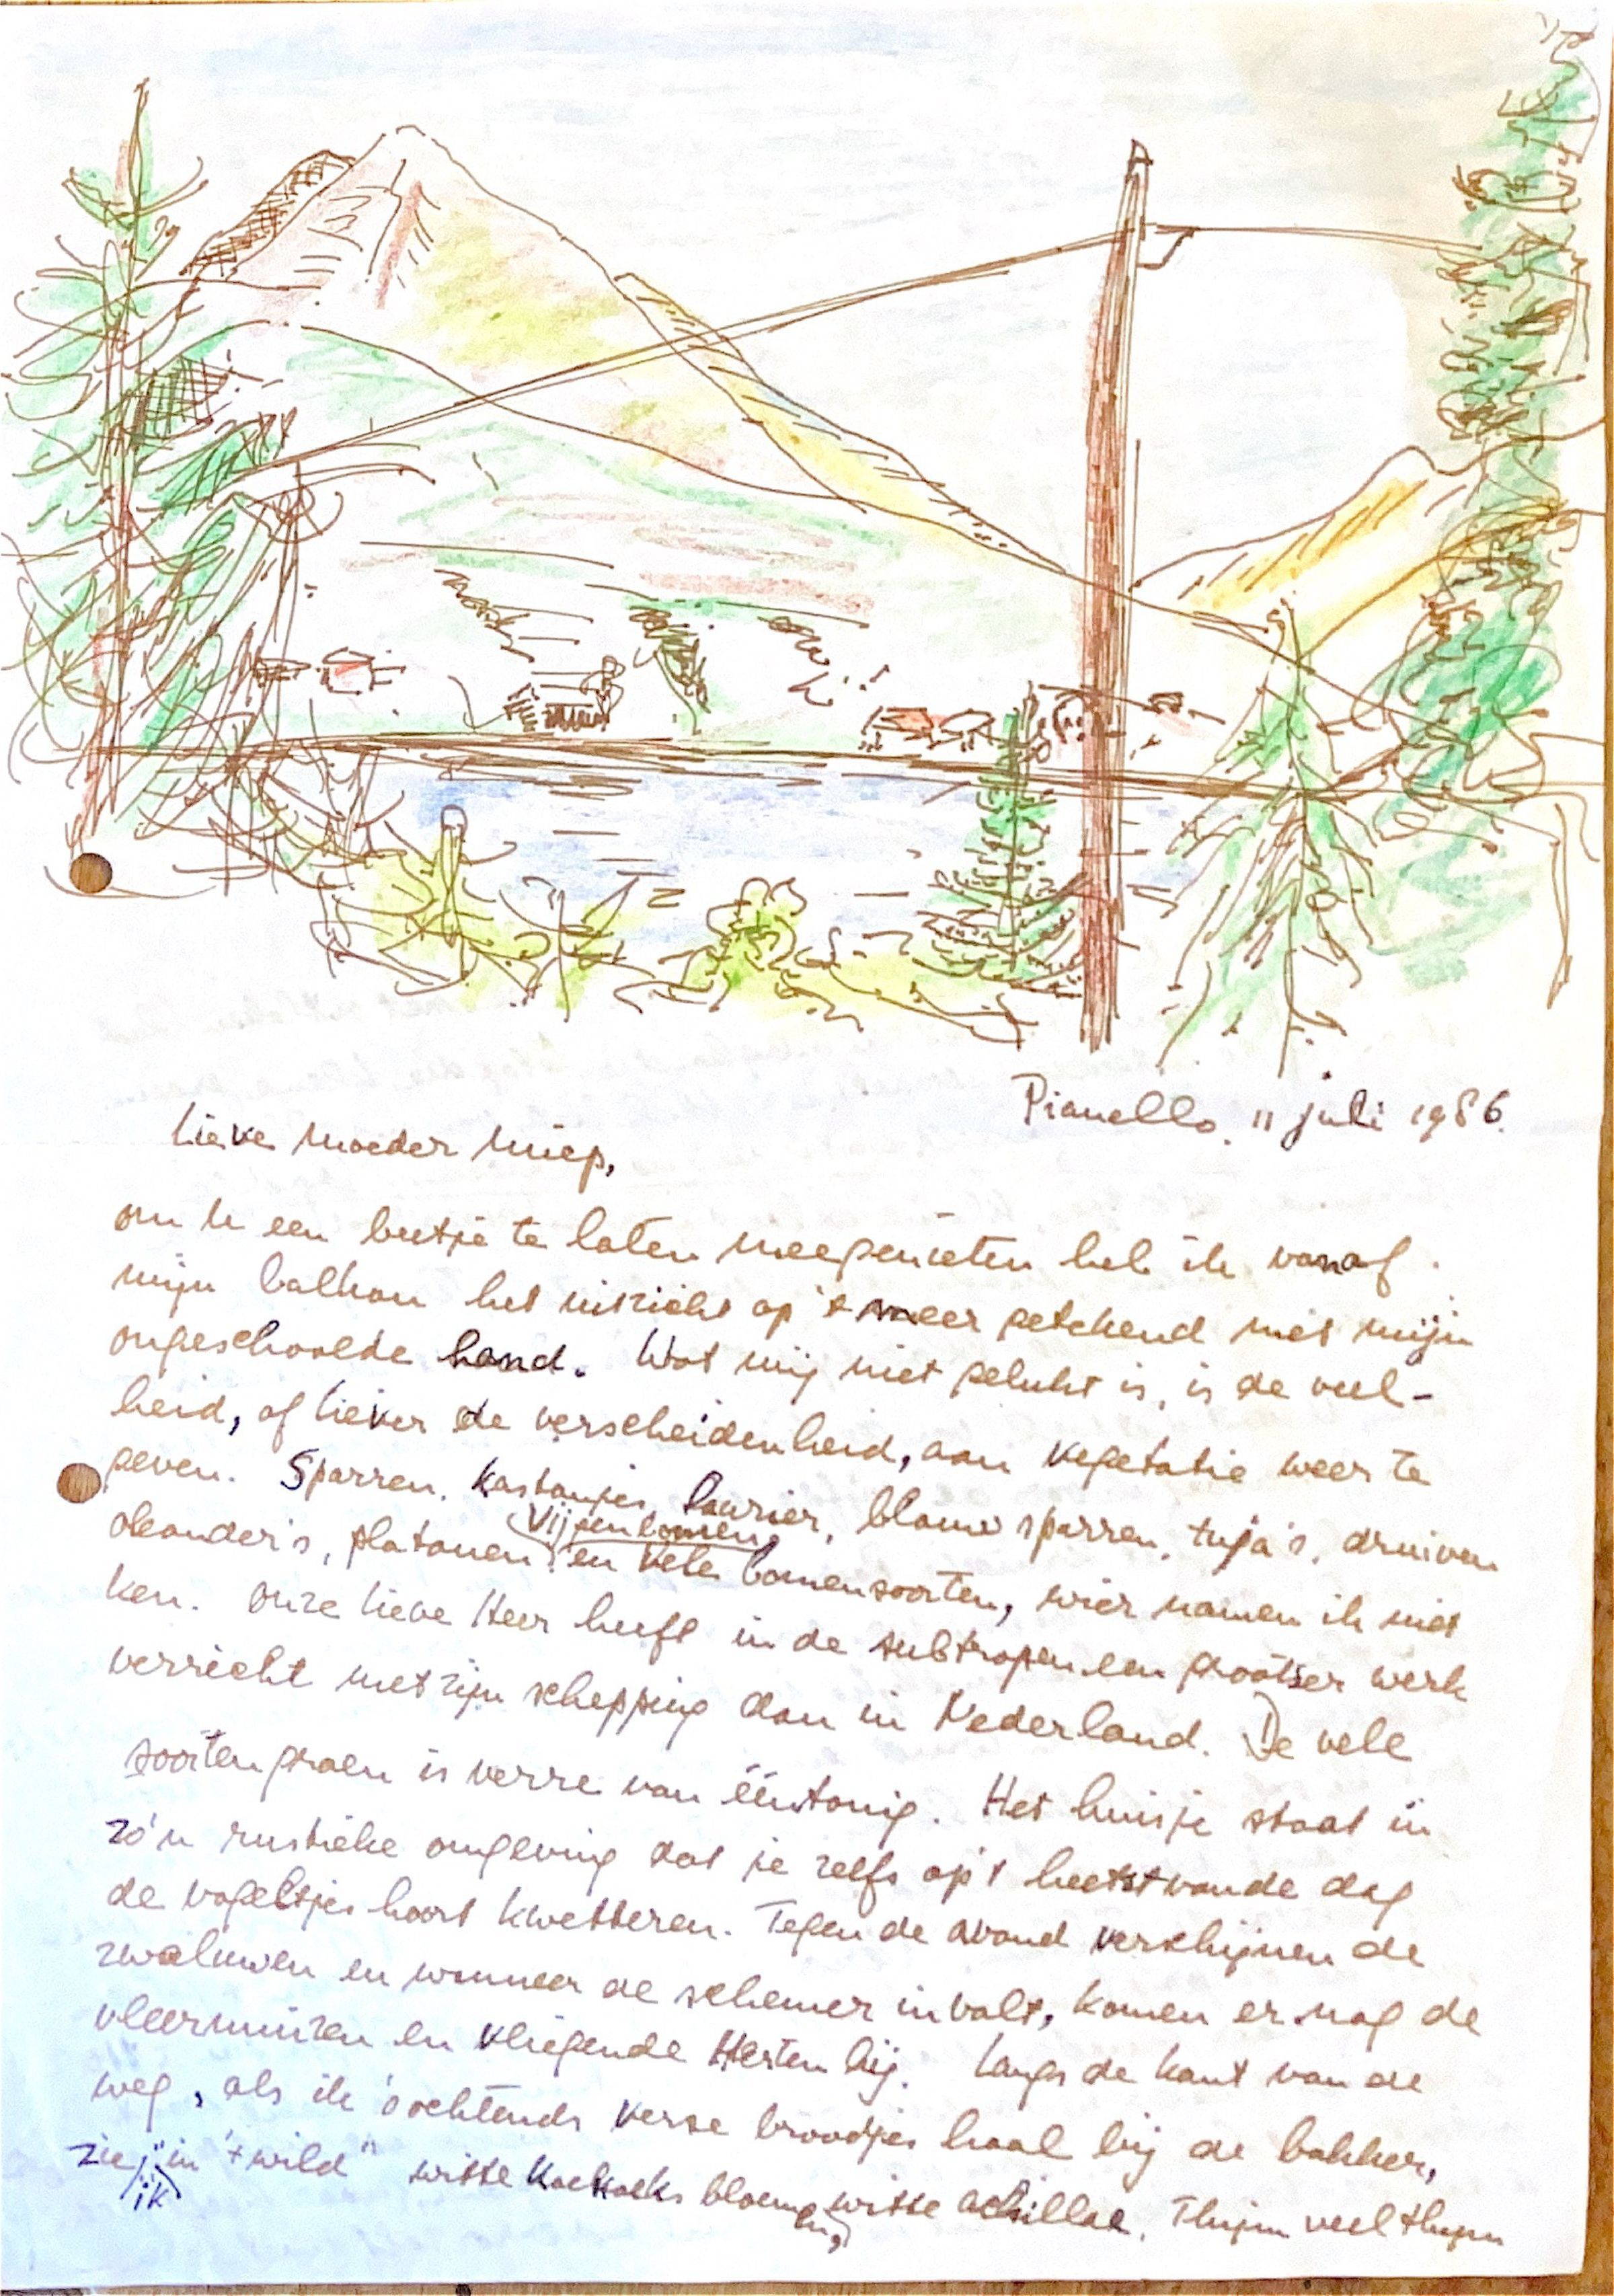 Pianello, 11 juli 1986.
Lieve moeder Miep,
om U een beetje te laten meegenieten heb ik vanaf
mijn balkon het uitzicht op 't meer getekend met mijn
ongeschoolde hand. Wat mij niet gelukt is, is de veel-
heid, of liever de verscheidenheid, aan vegetatie weer te
geven. Sparren, kastanjes, laurier, blauwe sparren, tuja's, druiven
Vijgenbomen,
oleander's, platanen en vele bomensoorten, wier namen ik niet
ken. Onze lieve Heer heeft in de subtropen een grootser werk
verricht met zijn schepping dan in Nederland. De vele
soorten groen is verre van ééntonig. Het huisje staat in
zo'n rustieke omgeving dat je zelfs op 't heetst van de dag
de vogeltjes hoort kwetteren. Tegen de avond verschijnen de
zwaluwen en wanneer de schemer invalt, komen er nog de
vleermuizen en vliegende Herten bij. Langs de kant van de
weg, als ik 's ochtends verse broodjes haal bij de bakker,
zie ik "in 't wild" witte koekoeksbloemen, witte achillae, Thijm veel thijm